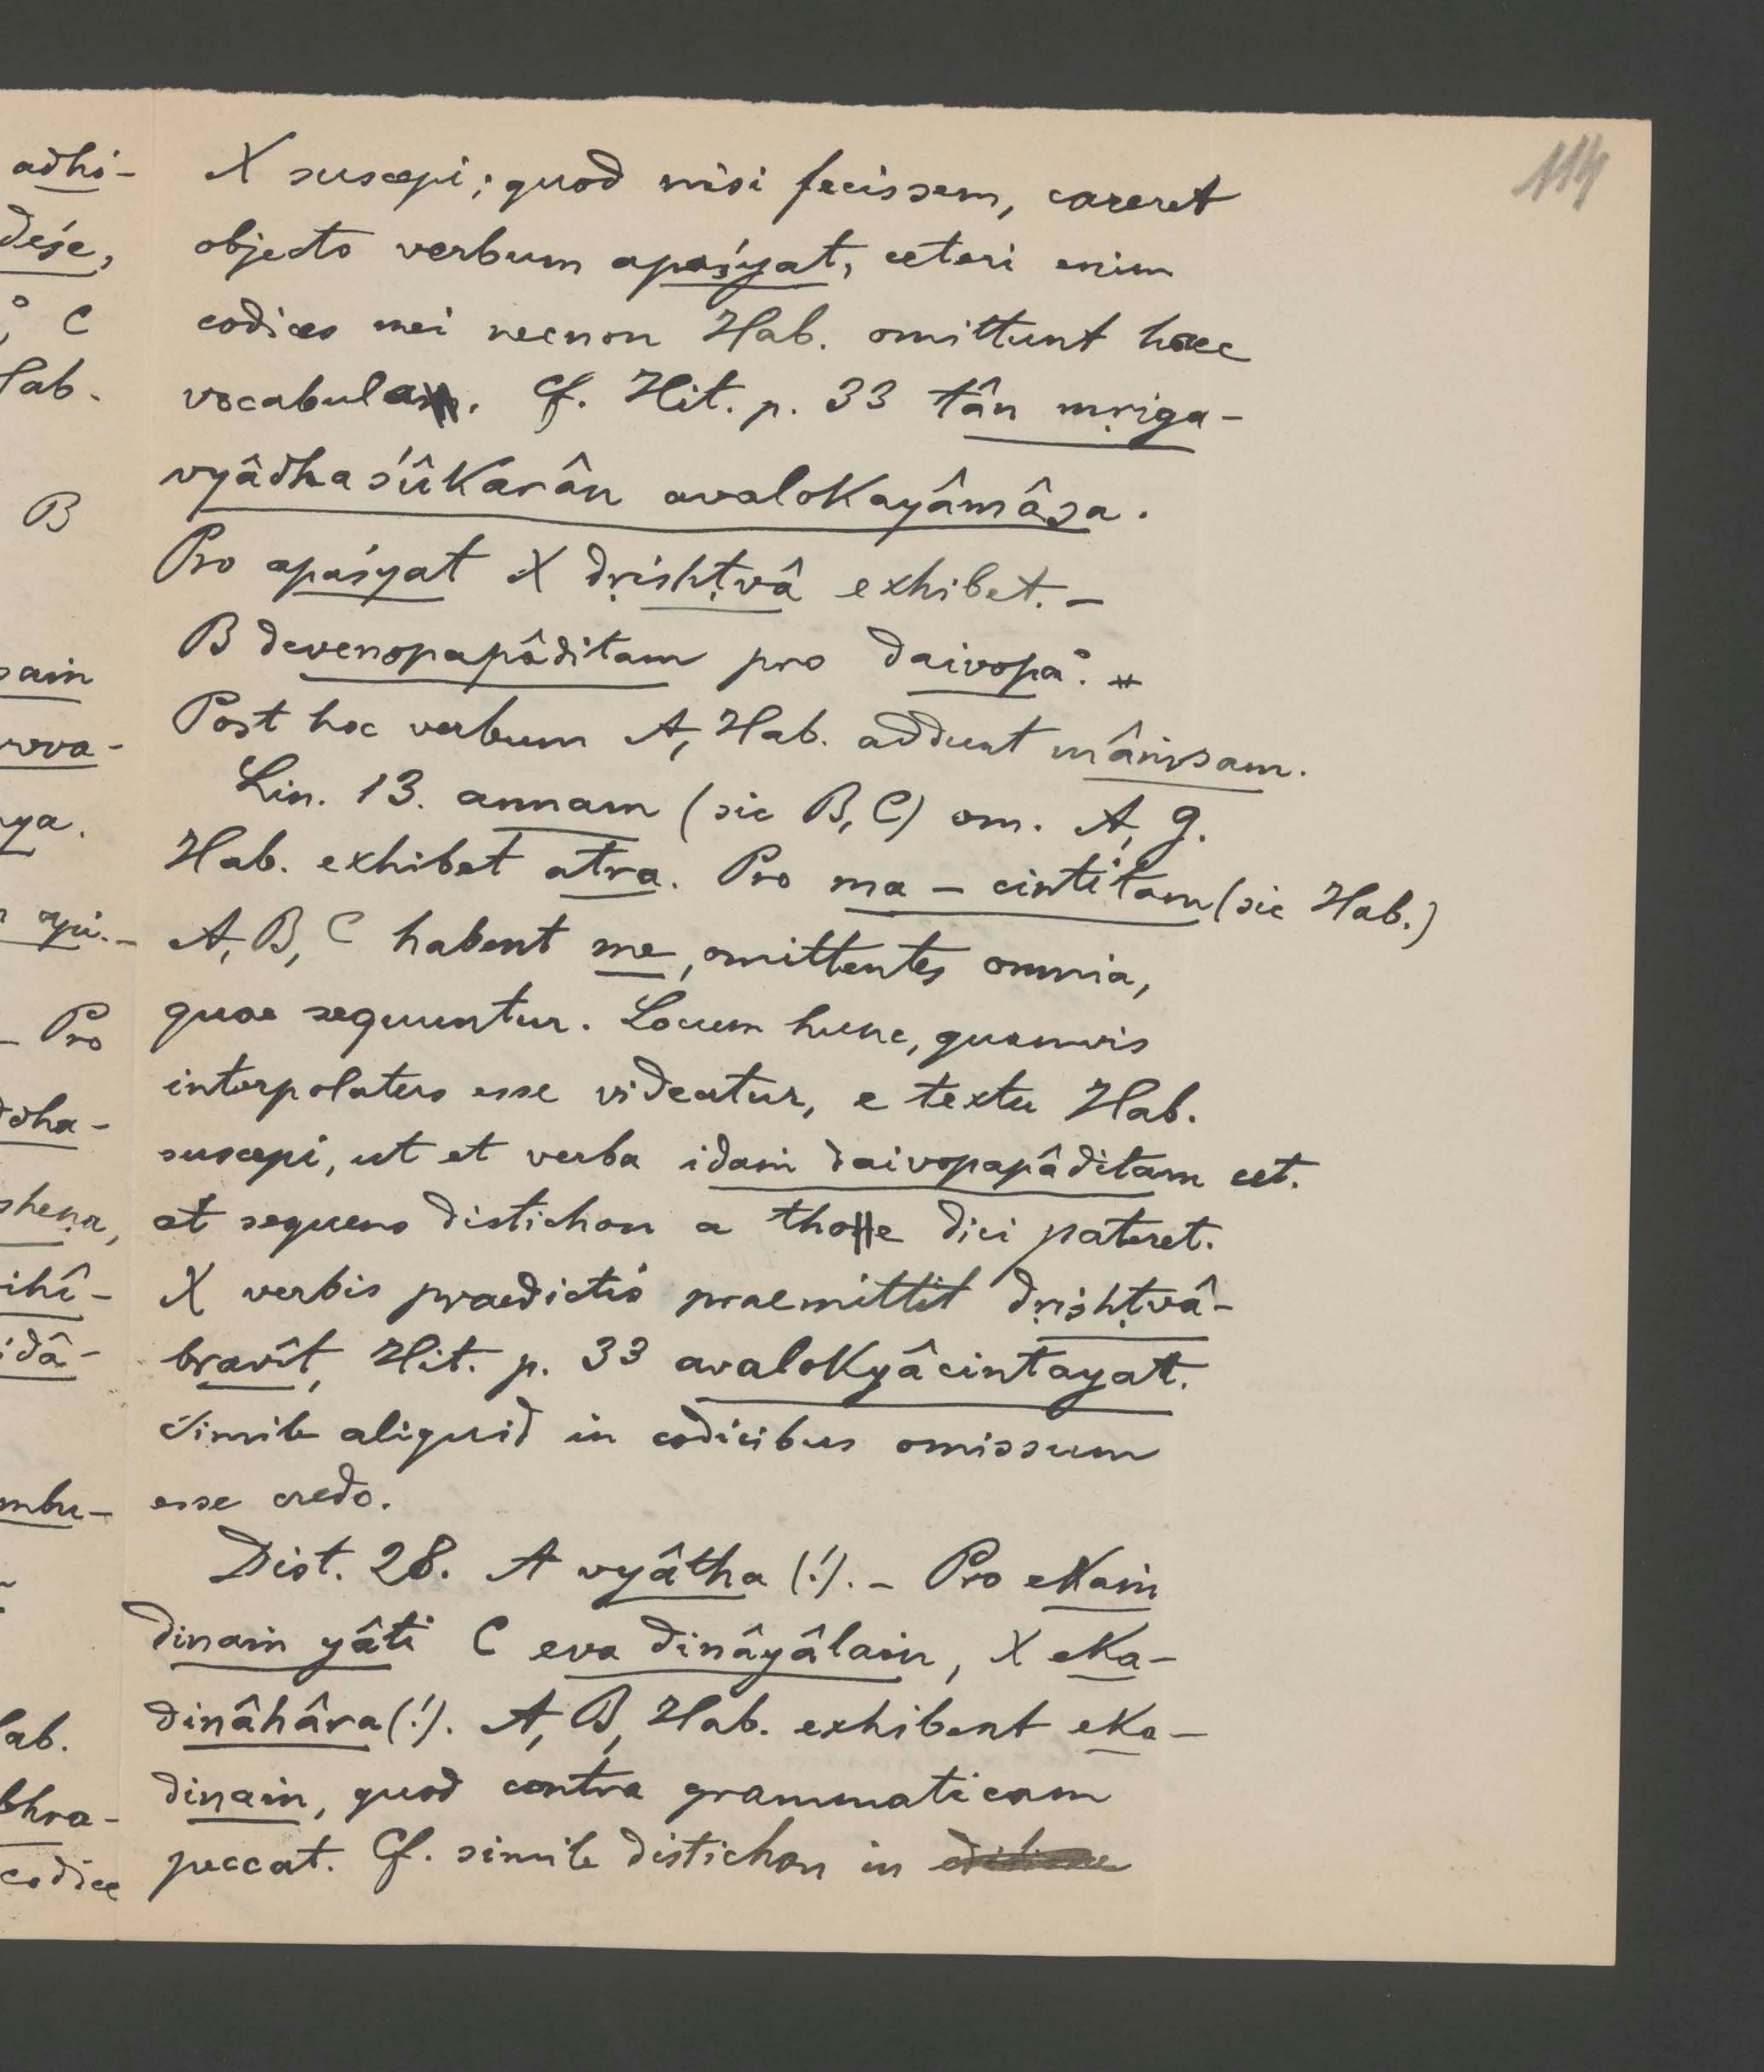 114
adhi-
deśe,
° C
Hab.
B
sam
rova-
ya.
api. -
- Pro
ddha-
sheṇa,
ihî-
idâ-
mbu-
Hab.
bhra-
codice
X suscepi; quod nisi fecissem, careret
objecto verbum apaśyat, ceteri enim
codices mei necnon Hab. omittunt haec
vocabula. Cf. Hit. p. 33 tân mṛiga-
vyâdhaśûkarân avalokayâmâsa.
Pro apaśyat X dṛishṭvâ exhibet. -
B devenopapâditam pro daivopa°.
Post hoc verbum A, Hab. addunt mâṁsam.
Lin. 13. annam (sic B, C) om. A, G.
Hab. exhibet atra. Pro ma - cintitam (sic Hab.)
A, B, C habent me, omittentes omnia,
quae sequuntur. Locum hunc, quamvis
interpolatus esse videatur, e textu Hab.
suscepi, ut et verba idaṁ daivopapâditam cet.
et sequens distichon a thoṣe dici pateret.
X verbis praedictis praemittit dṛishṭvâ-
bravît, Hit. p. 33 avalokyâcintayat.
Simile aliquid in codicibus omissum
esse credo.
Dist. 28. A vyâtha (!). - Pro ekaṁ
dinaṁ yâti C eva dinâyâlaṁ, X eka-
dinâhâra (!). A, B, Hab. exhibent eka-
dinaṁ, quod contra grammaticam
peccat. Cf. simile distichon in